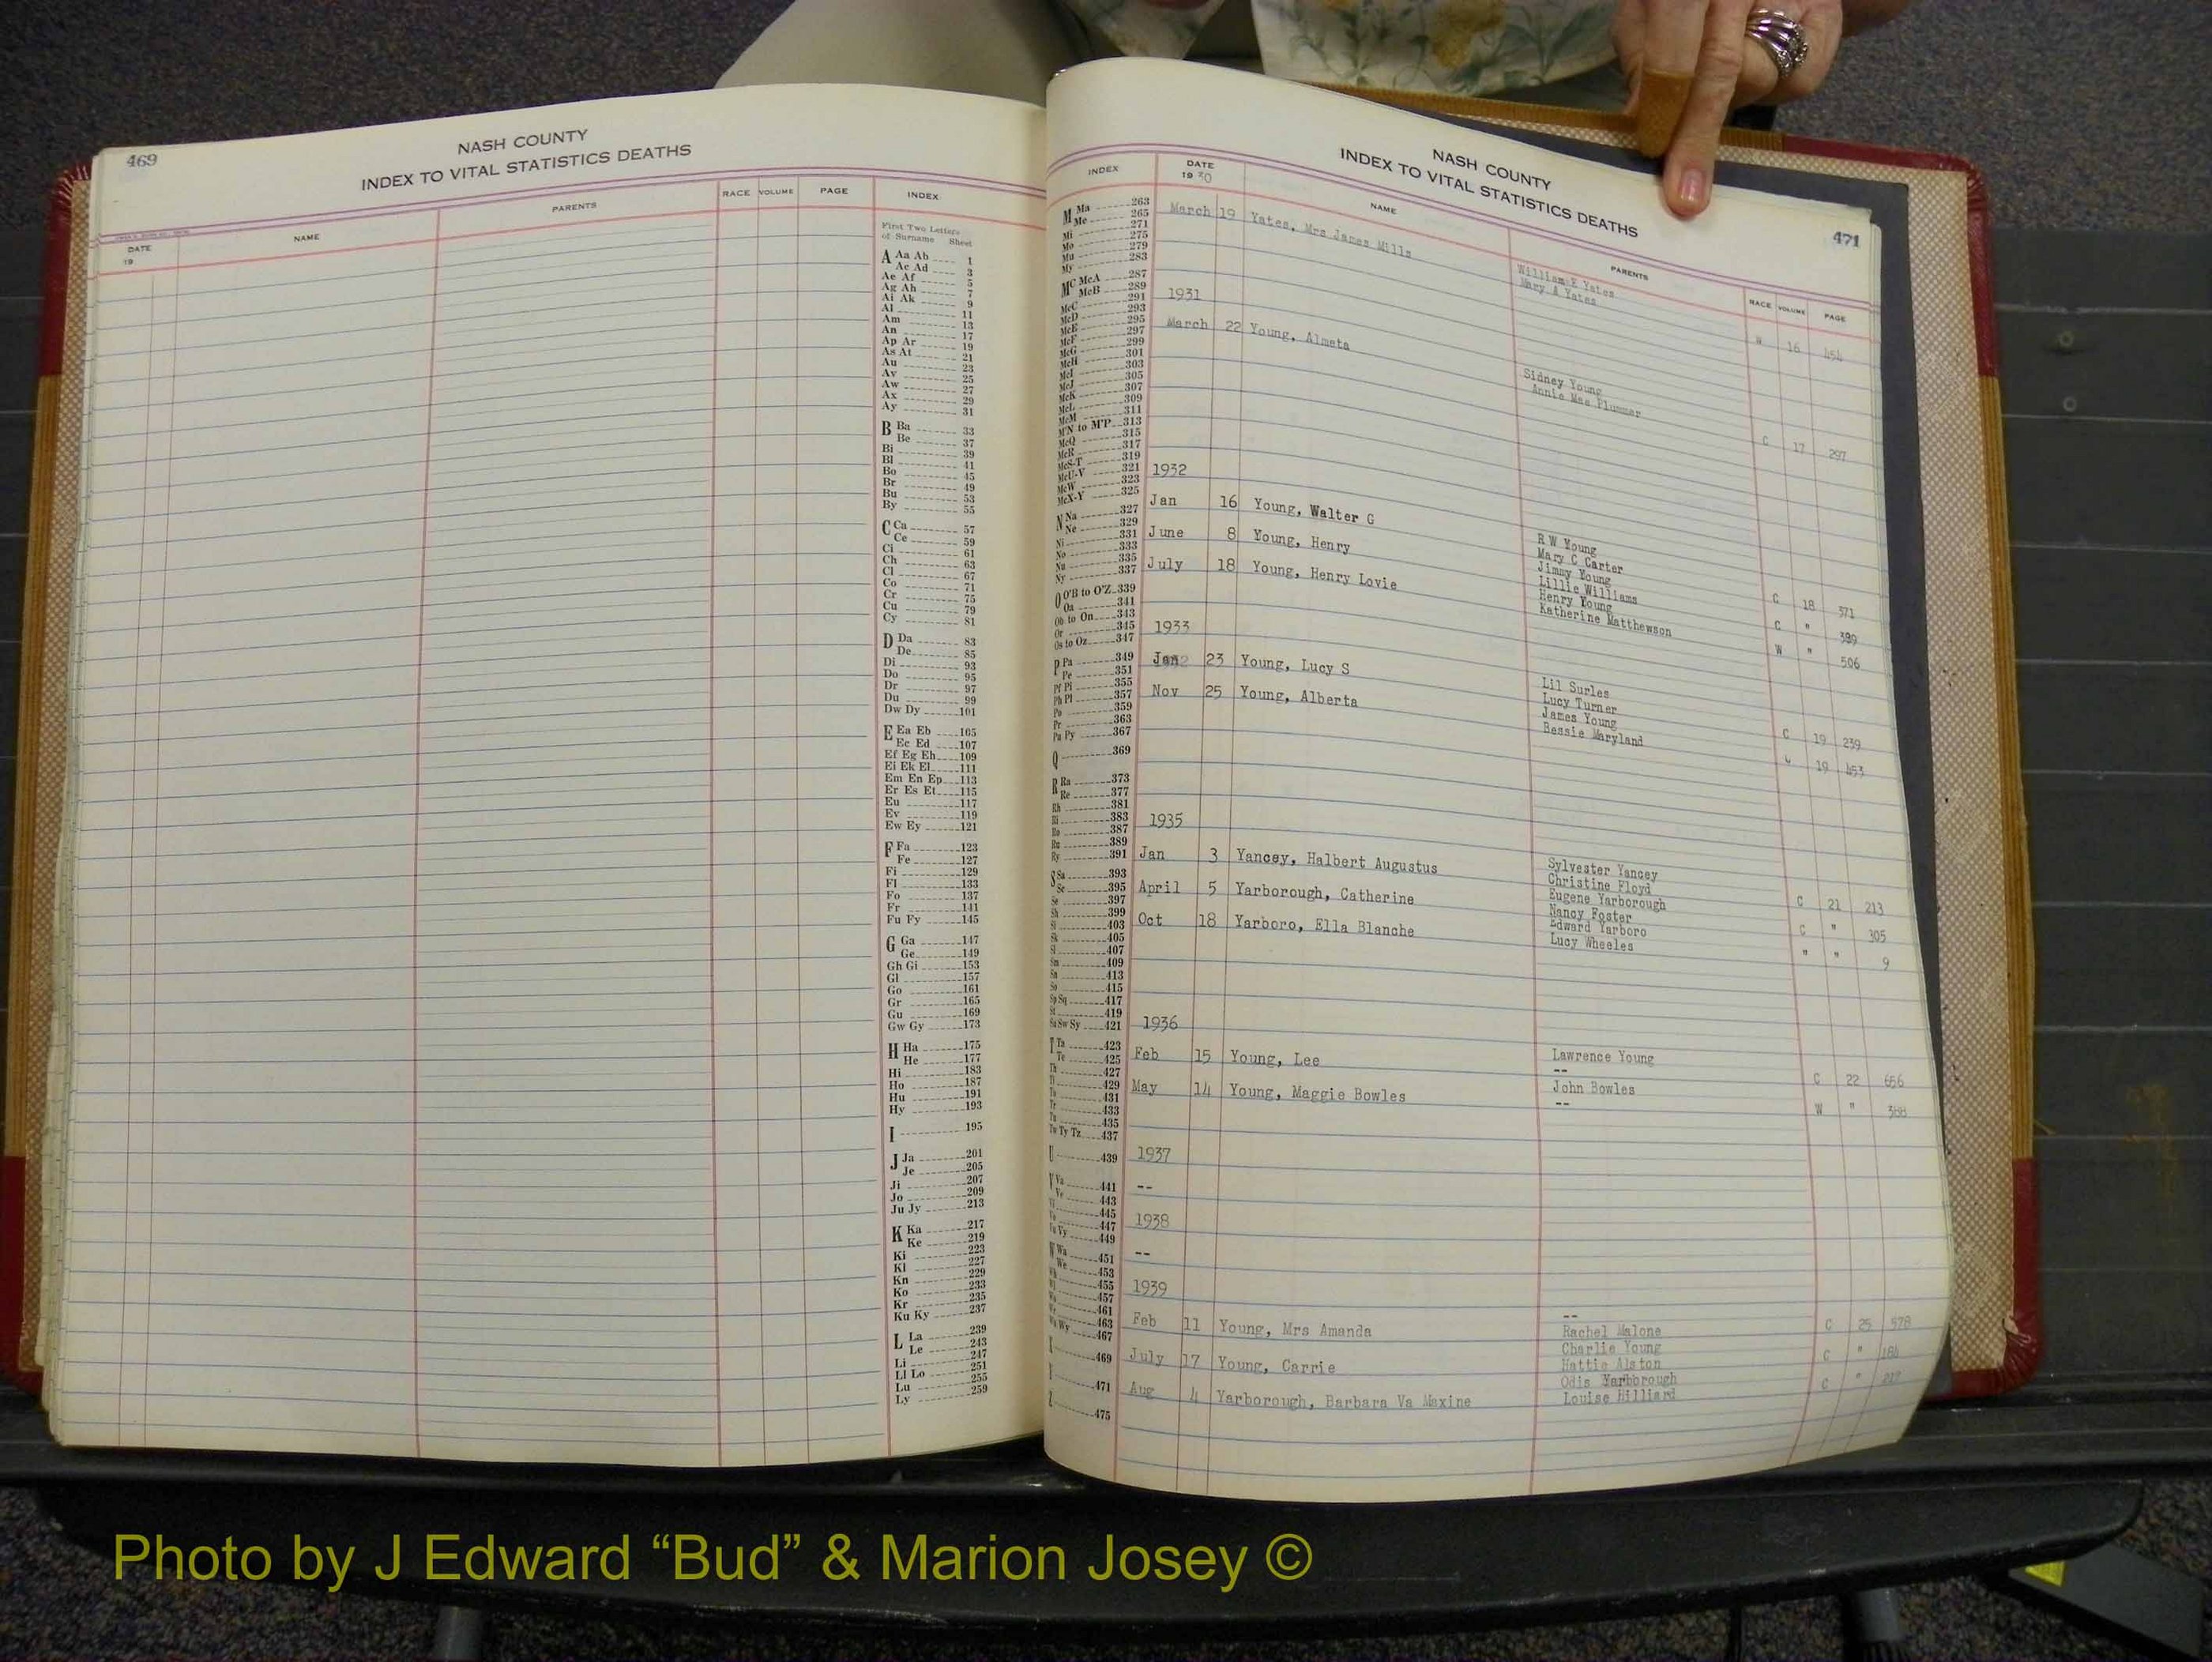 469
NASH COUNTY
INDEX TO VITAL STATISTICS DEATHS
DATE
19
NAME
PARENTS
RACE VOLUME PAGE INDEX
First Two Letters
of Surname Sheet
A Aa Ab 1
Ac Ad 3
Ae Af 5
Ag Ah 7
Ai Ak 9
Al 11
Am 13
An 17
Ap Ar 19
As At 21
Au 23
Av 25
Aw 27
Ax 29
Ay 31
B Ba 33
Be 37
Bi 39
Bl 41
Bo 45
Br 49
Bu 53
By 55
C Ca 57
Ce 59
Ci 61
Ch 63
Cl 67
Co 71
Cr 75
Cu 79
Cy 81
D Da 83
De 85
Di 93
Do 95
Dr 97
Du 99
Dw Dy 101
E Ea Eb 105
Ec Ed 107
Ef Eg Eh 109
Ei Ek El 111
Em En Ep 113
Er Es Et 115
Eu 117
Ev 119
Ew Ey 121
F Fa 123
Fe 127
Fi 129
Fl 133
Fo 137
Fr 141
Fu Fy 145
G Ga 147
Ge 149
Gh Gi 153
Gl 157
Go 161
Gr 165
Gu 169
Gw Gy 173
H Ha 175
He 177
Hi 183
Ho 187
Hu 191
Hy 193
I 195
J Ja 201
Je 205
Ji 207
Jo 209
Ju Jy 213
K Ka 217
Ke 219
Ki 223
Kl 227
Kn 229
Ko 233
Kr 235
Ku Ky 237
L La 239
Le 243
Li 247
Ll Lo 251
Lu 255
Ly 259
NASH COUNTY
INDEX TO VITAL STATISTICS DEATHS
471
INDEX
DATE
19 30
NAME
PARENTS
RACE VOLUME PAGE
M Ma 263
Me 265
Mi 271
Mo 275
Mu 279
My 283
Mc McA 287
McB 289
McC 291
McD 293
McE 295
McF 297
McG 299
McH 301
McI 303
McJ 305
McK 307
McL 309
McM 311
M'N to M'P 313
McQ 315
McR 317
McS-T 319
McU-V 321
McW 323
McX-Y 325
N Na 327
Ne 329
Ni 331
No 333
Nu 335
Ny 337
O O'B to O'Z 339
Oa 341
Ob to On 343
Or 345
Os to Oz 347
P Pa 349
Pe 351
Pf Pi 355
Ph Pl 357
Po 359
Pr 363
Pu Py 367
Q 369
R Ra 373
Re 377
Rh 381
Ri 383
Ro 387
Ru 389
Ry 391
S Sa 393
Sc 395
Se 397
Sh 399
Si 403
Sk 405
Sl 407
Sm 409
Sn 413
So 415
Sp Sq 417
St 419
Su Sw Sy 421
T Ta 423
Te 425
Th 427
Ti 429
To 431
Tr 433
Tu 435
Tw Ty Tz 437
U 439
V Va 441
Ve 443
Vi 445
Vo 447
Vu Vy 449
W Wa 451
We 453
Wh 455
Wi 457
Wo 461
Wr 463
Wu Wy 467
X 469
Y 471
Z 475
March 19 Yates, Mrs James Mills
William E Yates
Mary A Yates
W 16 454
1931
March 22 Young, Almeta
Sidney Young
Annie Mae Plummer
C 17 297
1932
Jan 16 Young, Walter G
R W Young
Mary C Carter
C 18 371
June 8 Young, Henry
Jimmy Young
Lillie Williams
C " 389
July 18 Young, Henry Lovie
Henry Young
Katherine Matthewson
W " 506
1933
Jan 23 Young, Lucy S
Lil Surles
Lucy Turner
C 19 239
Nov 25 Young, Alberta
James Young
Bessie Maryland
19 453
1935
Jan 3 Yancey, Halbert Augustus
Sylvester Yancey
Christine Floyd
C 21 213
April 5 Yarborough, Catherine
Eugene Yarborough
Nancy Foster
C " 305
Oct 18 Yarboro, Ella Blanche
Edward Yarboro
Lucy Wheeles
" " 9
1936
Feb 15 Young, Lee
Lawrence Young
--
C 22 656
May 14 Young, Maggie Bowles
John Bowles
--
W " 388
1937
--
1938
--
1939
Feb 11 Young, Mrs Amanda
--
Rachel Malone
C 25 578
July 17 Young, Carrie
Charlie Young
Hattie Alston
C " 184
Aug 4 Yarborough, Barbara Va Maxine
Odis Yarbborough
Louise Hilliard
C " 217
Photo by J Edward “Bud” & Marion Josey ©